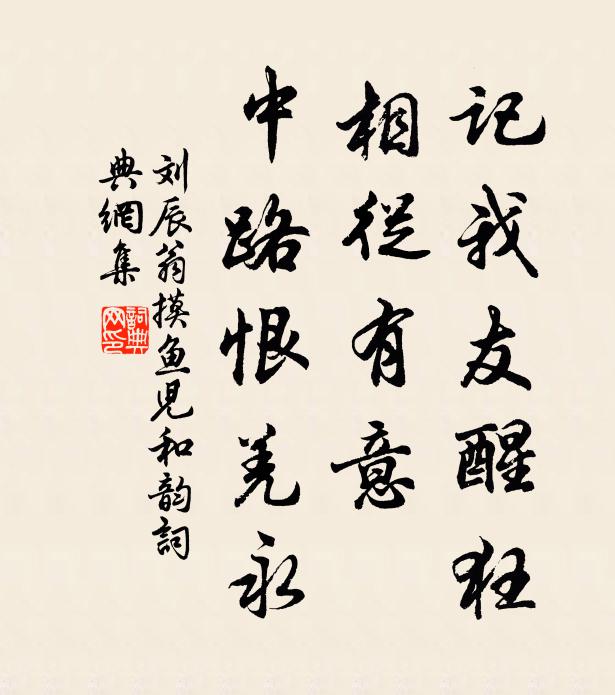 记我友醒狂
相從有意
中路恨羌永
刘辰翁摸鱼児和韵詞
典網集
詞典
网印